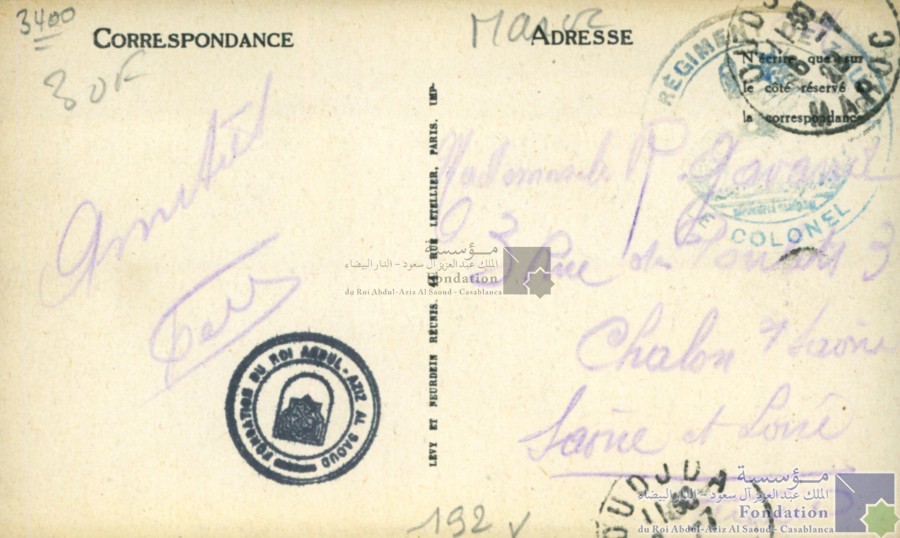 3400
Maroc
CORRESPONDANCE
ADRESSE
30F
N'écrire que sur
le côté réservé à
la correspondance
RÉGIMENT DE
LE COLONEL
OUDJDA
MAROC
Amitiés
Mademoiselle
3 Rue de 3
Chalon s/ Saône
Saône et Loire
LÉVY ET NEURDEIN RÉUNIS. 44 RUE LETELLIER, PARIS. IMP.
مؤسسة
الملك عبد العزيز آل سعود - الدار البيضاء
Fondation
du Roi Abdul-Aziz Al Saoud - Casablanca
FONDATION DU ROI ABDUL-AZIZ AL SAOUD
OUDJDA
مؤسسة
الملك عبد العزيز آل سعود - الدار البيضاء
Fondation
du Roi Abdul-Aziz Al Saoud - Casablanca
192